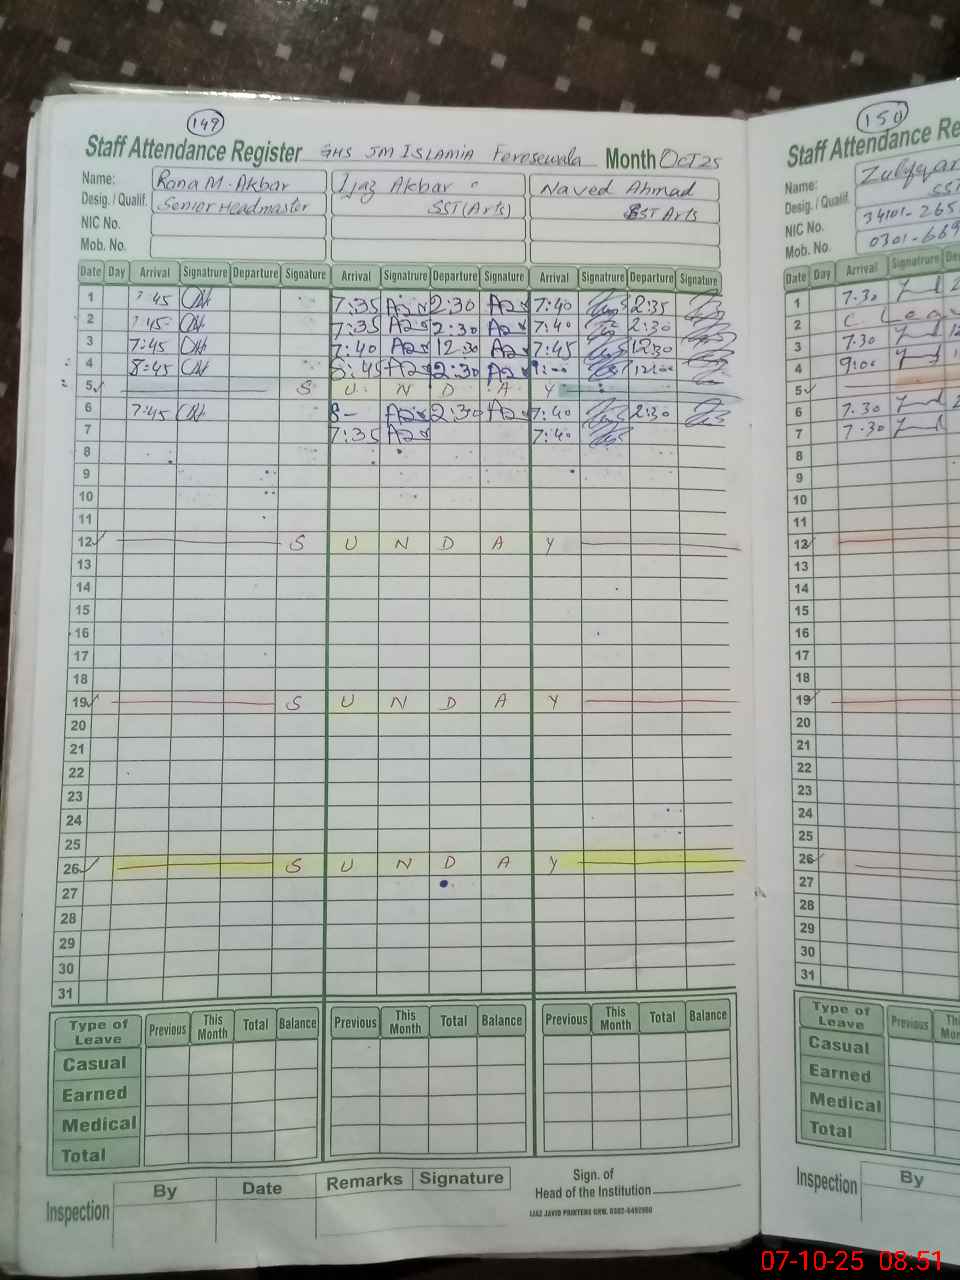 149
Staff Attendance Register GHS JM ISLAMIA Ferosewala Month Oct 25
Name: Rana M. Akbar Ijaz Akbar Naved Ahmad
Desig. / Qualif. Senior Headmaster SST (Arts) SST Arts
NIC No.
Mob. No.
Date Day Arrival Signatrure Departure Signature Arrival Signatrure Departure Signature Arrival Signatrure Departure Signature
1 7:45 7:35 2:30 7:40 2:35
2 7:45 7:35 2:30 7:40 2:30
3 7:45 7:40 12:30 7:45 12:30
4 8:45 8:45 2:30 12:00
5 S U N D A Y
6 7:45 8- 2:30 7:40 2:30
7 7:35 7:40
8
9
10
11
12 S U N D A Y
13
14
15
16
17
18
19 S U N D A Y
20
21
22
23
24
25
26 S U N D A Y
27
28
29
30
31
Type of Leave Previous This Month Total Balance Previous This Month Total Balance Previous This Month Total Balance
Casual
Earned
Medical
Total
Inspection By Date Remarks Signature
Sign. of
Head of the Institution
IJAZ JAVID PRINTERS GRW.
150
Staff Attendance Re
Name:
Desig. / Qualif. SST
NIC No. 34101-265
Mob. No. 0301-669
Date Day Arrival Signatrure De
1 7.30
2 C. Leav
3 7.30
4 9:00
5
6 7.30
7 7.30
8
9
10
11
12
13
14
15
16
17
18
19
20
21
22
23
24
25
26
27
28
29
30
31
Type of Leave Previous Th Mo
Casual
Earned
Medical
Total
Inspection By
07-10-25 08.51